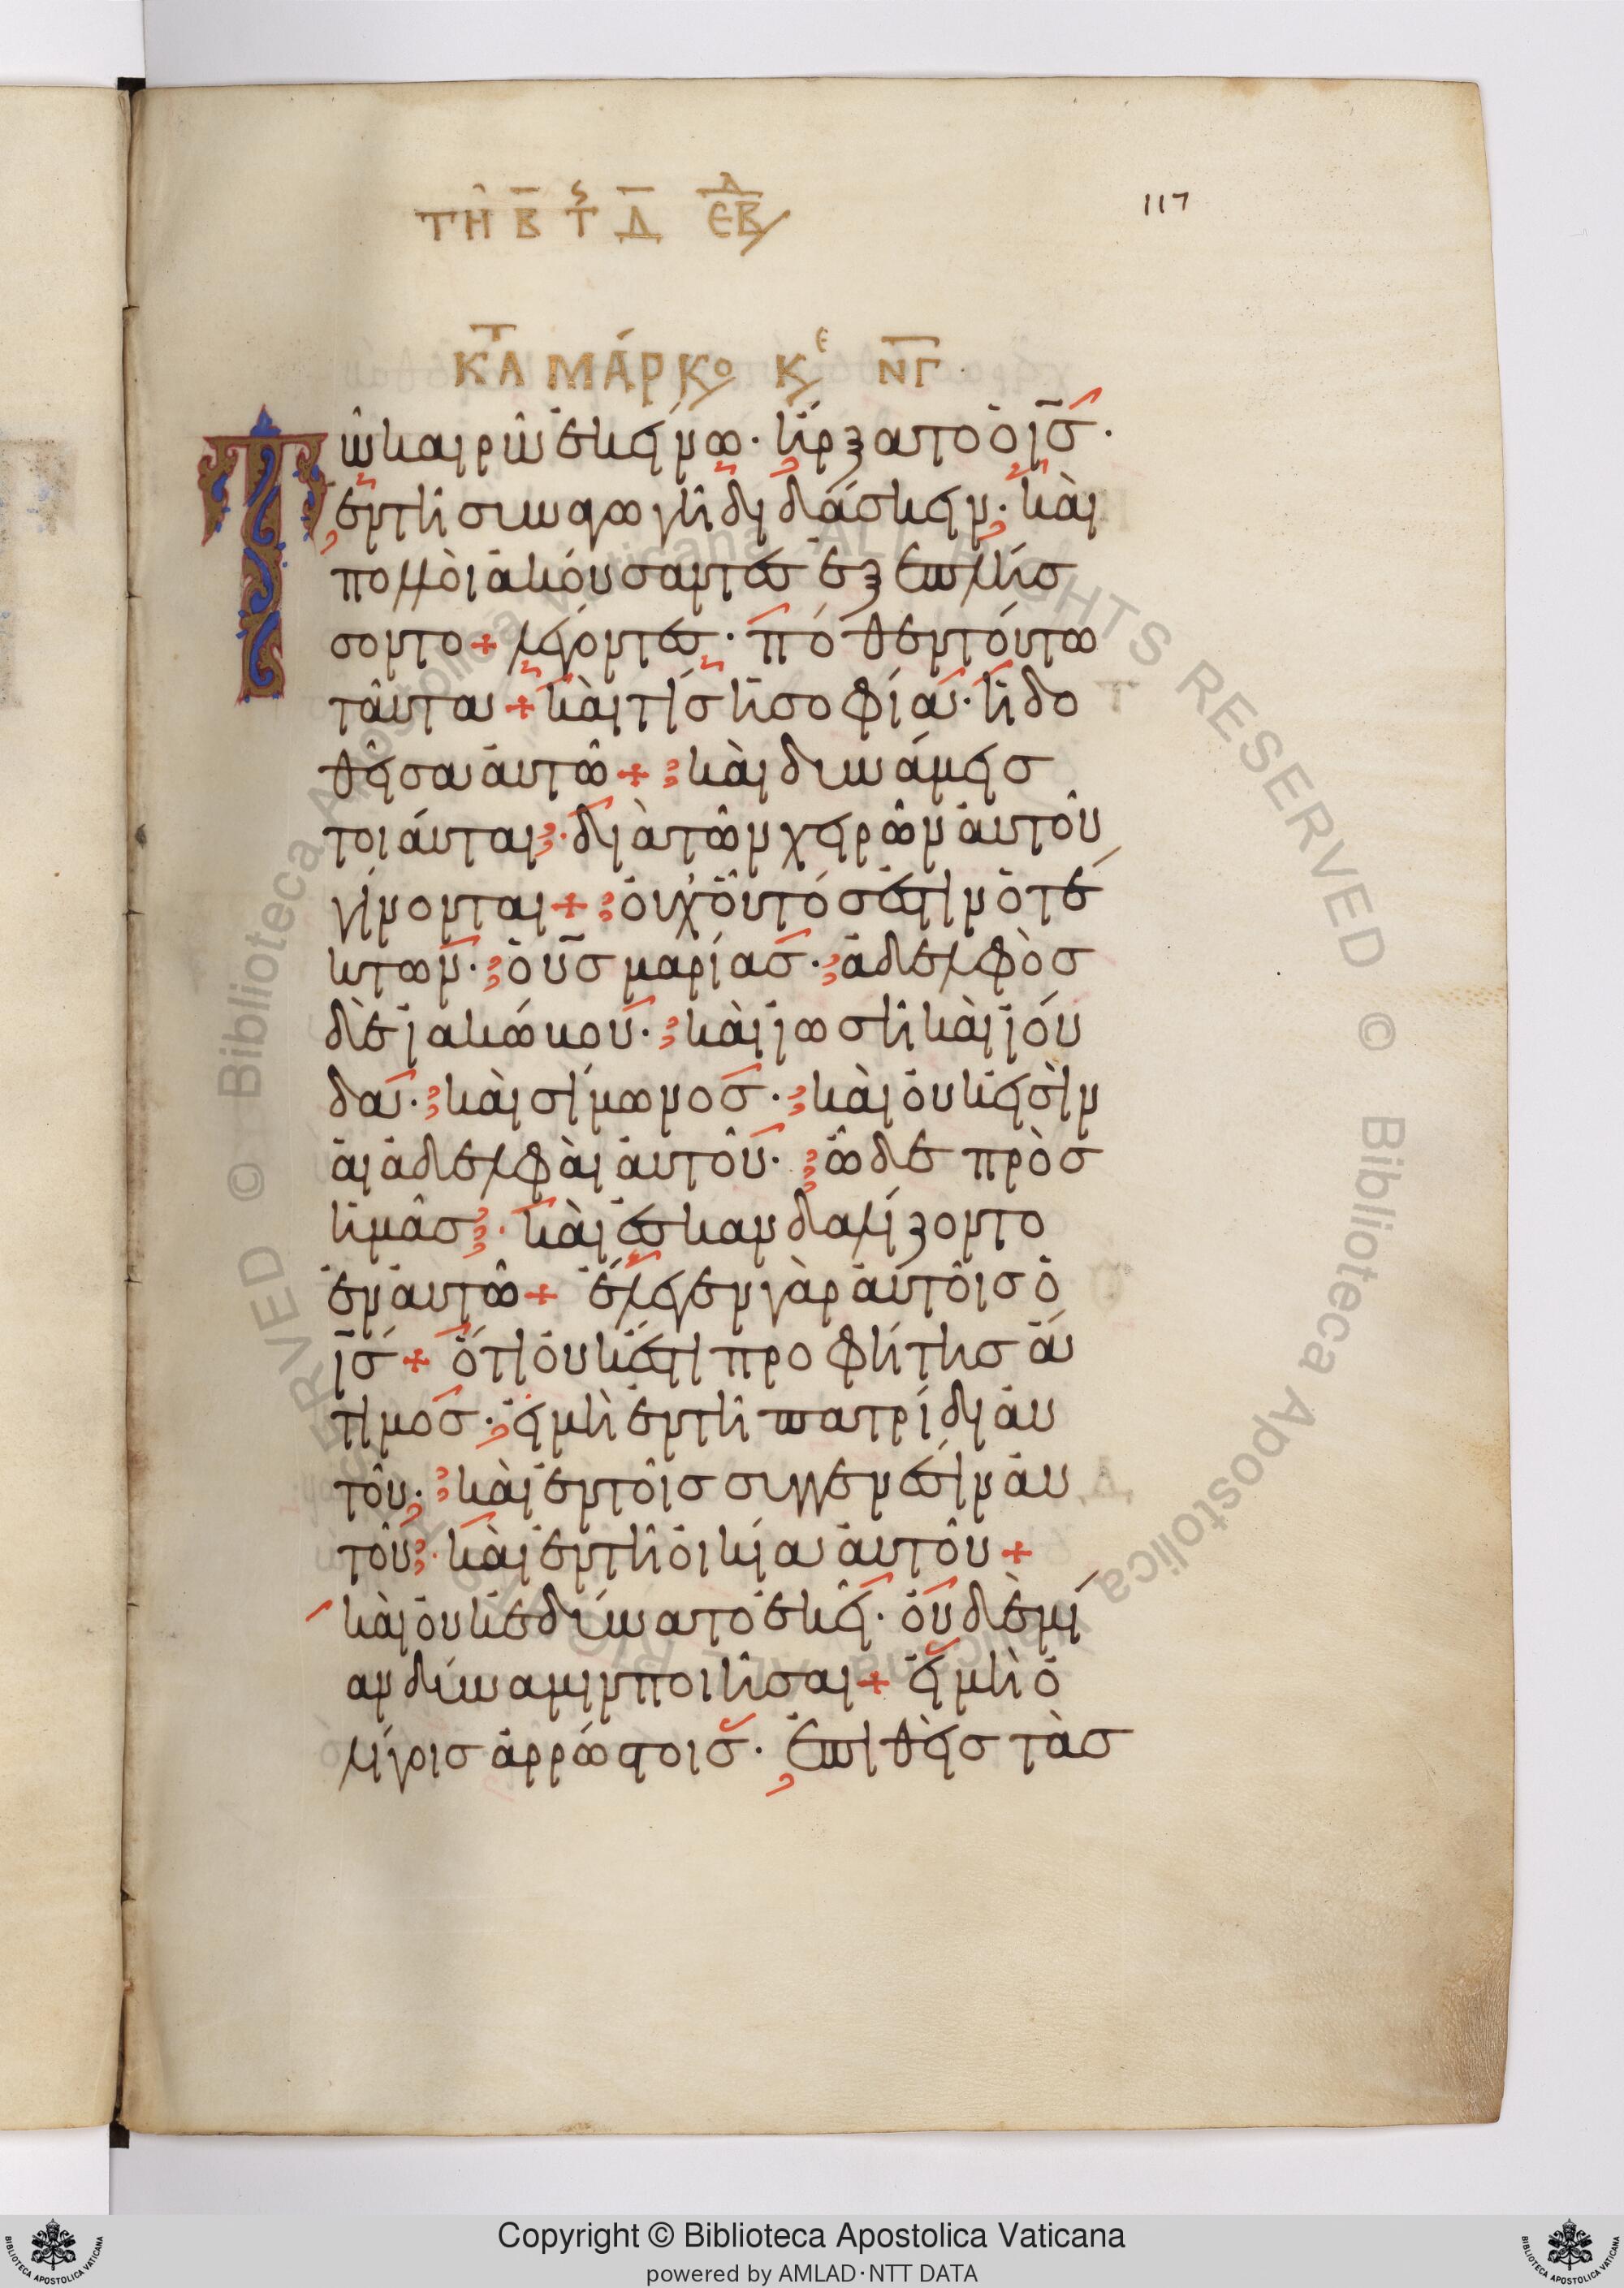 ΤΗ Β Τ Δ ΕΒΔ
117
ΚΤΑ ΜΑΡΚΟ ΚΕ ΝΓ
Τῶ καιρῶ ἐκείνω· ἤρξατο ὁ ἰς·
ἐν τῆ συναγωγῆ διδάσκειν· καὶ
πολλοὶ ἀκούσαντες ἐξεπλήσ
σοντο + λέγοντες· πόθεν τούτω
ταῦτα + καὶ τίς ἡ σοφία· ἡ δο
θεῖσα αὐτῶ + καὶ δυνάμεις
τοιάυται· διὰ τῶν χειρῶν αὐτοῦ
γίνονται + οὐχ οὗτός ἐστιν ὁ τέ
κτων· ὁ υς μαρίας· ἀδελφὸς
δὲ ἰακώβου· καὶ ἰωσῆ καὶ ἰού
δα· καὶ σίμωνος· καὶ οὐκ εἰσὶν
αἱ ἀδελφαὶ αὐτοῦ· ὧδε πρὸς
ἡμᾶς· καὶ ἐσκανδαλίζοντο
ἐν αὐτῶ + ἔλεγεν γὰρ αὐτοῖς ὁ
ἰς + ὅτι οὐκ ἔστι προφήτης ἄ
τιμος· εἰ μὴ ἐν τῆ πατρίδι αὐ
τοῦ· καὶ ἐν τοῖς συγγενέσιν αὐ
τοῦ· καὶ ἐν τῆ οἰκία αὐτοῦ +
καὶ οὐκ ἐδύνατο ἐκεῖ· οὐδεμί
αν δύναμιν ποιῆσαι + εἰ μὴ ὀ
λίγοις ἀρρώστοις· ἐπιθεὶς τὰς
© Biblioteca Apostolica Vaticana ALL RIGHTS RESERVED © Biblioteca Apostolica Vaticana ALL RIGHTS RESERVED
Copyright © Biblioteca Apostolica Vaticana
powered by AMLAD·NTT DATA
BIBLIOTECA APOSTOLICA VATICANA
BIBLIOTECA APOSTOLICA VATICANA